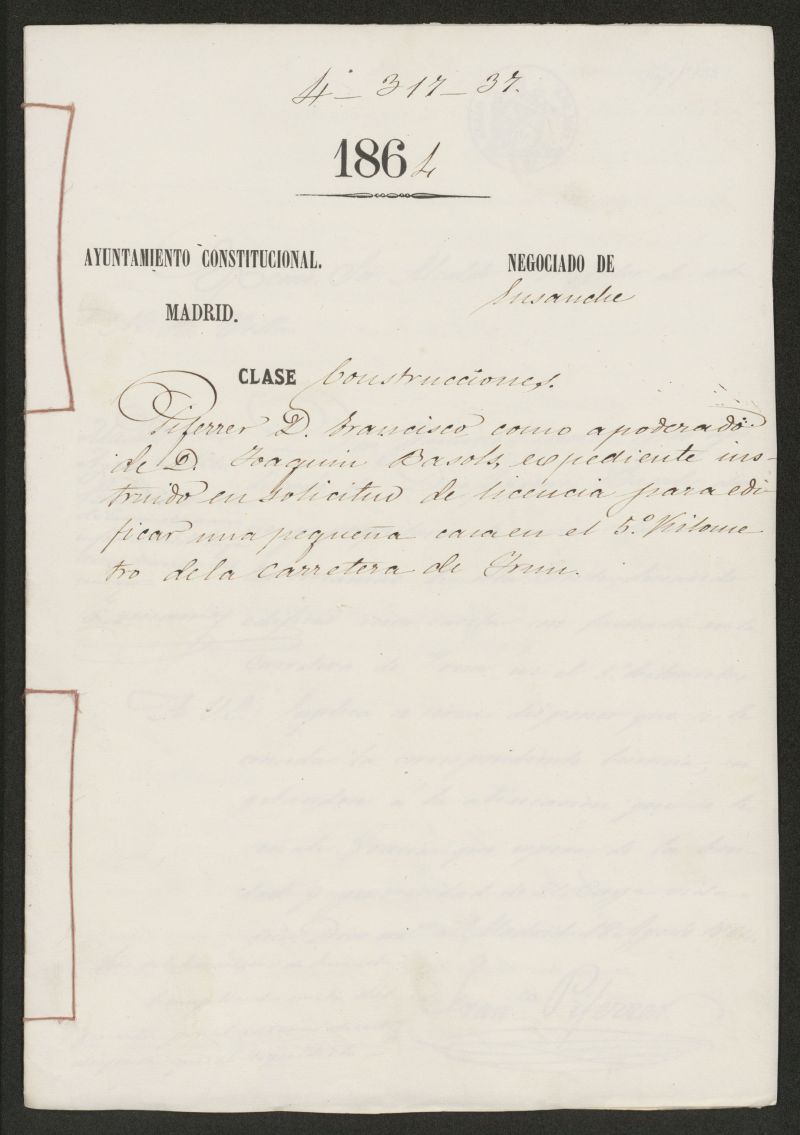 4ª - 317 - 37.
1864
AYUNTAMIENTO CONSTITUCIONAL.
MADRID.
NEGOCIADO DE
Ensanche
CLASE Construcciones.
Piferrer D. Francisco como apoderado
de D. Joaquin Basols, expediente ins-
truido en solicitud de licencia para edi-
ficar una pequeña casa en el 5.º Kilome
tro de la Carretera de Irun.